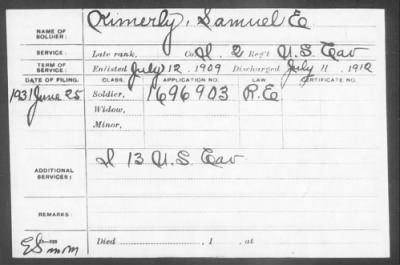 NAME OF SOLDIER: Kimerly, Samuel E
SERVICE: Late rank, Co. I, 2 Reg't U.S. Cav
TERM OF SERVICE: Enlisted July 12, 1909 Discharged July 11, 1912
DATE OF FILING. CLASS. APPLICATION NO. LAW. CERTIFICATE NO.
1931 June 25 Soldier, 1696903 R.E
Widow,
Minor,
ADDITIONAL SERVICES: I 13 U.S. Cav
REMARKS:
Died , 1 , at